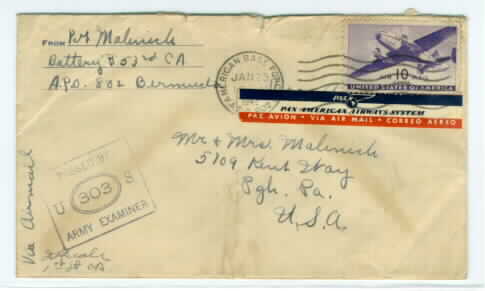 FROM Pvt Malenich
Battery B 53rd CA
A.P.O. 802 Bermuda
AMERICAN BASE FORCES
JAN 23
10
UNITED STATES OF AMERICA
PAN AMERICAN AIRWAYS SYSTEM
PAR AVION · VIA AIR MAIL · CORREO AEREO
Mr & Mrs. Malenich
5709 Kent Way
Pgh. Pa.
U.S.A.
Via Airmail
PASSED BY
U 303 S
ARMY EXAMINER
1st Lt CA